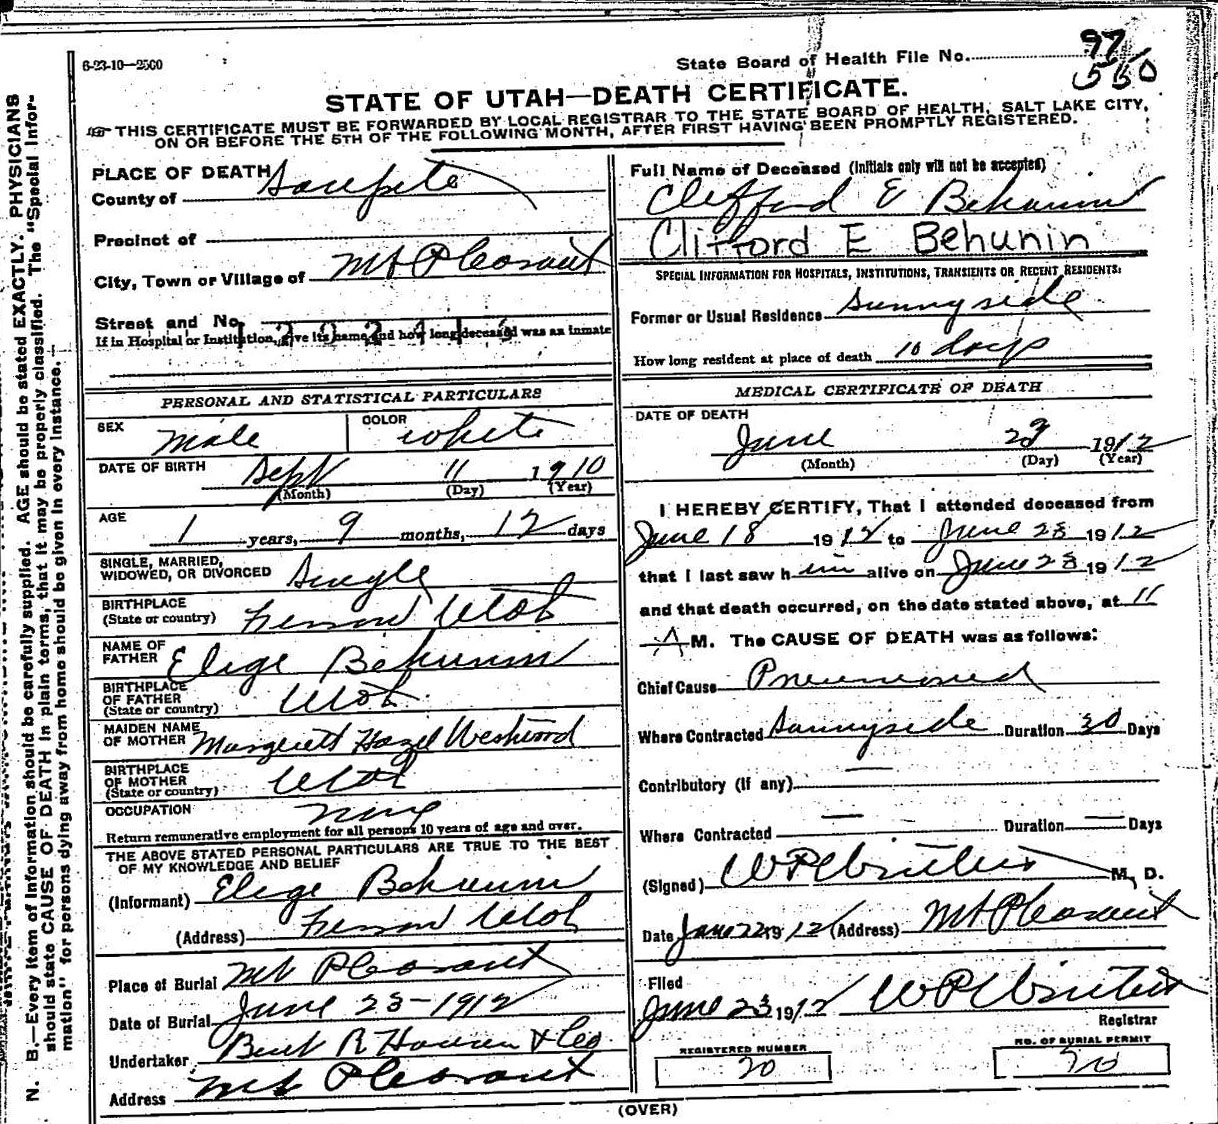 6-23-10—2500
State Board of Health File No. 97
550
STATE OF UTAH—DEATH CERTIFICATE.
THIS CERTIFICATE MUST BE FORWARDED BY LOCAL REGISTRAR TO THE STATE BOARD OF HEALTH, SALT LAKE CITY,
ON OR BEFORE THE 5TH OF THE FOLLOWING MONTH, AFTER FIRST HAVING BEEN PROMPTLY REGISTERED.
N. B.—Every item of information should be carefully supplied. AGE should be stated EXACTLY. PHYSICIANS
should state CAUSE OF DEATH in plain terms, that it may be properly classified. The "Special Infor-
mation" for persons dying away from home should be given in every instance.
PLACE OF DEATH
County of Sanpete
Precinct of
City, Town or Village of Mt Pleasant
Street and No.
If in Hospital or Institution, give its name and how long deceased was an inmate
PERSONAL AND STATISTICAL PARTICULARS
SEX Male COLOR White
DATE OF BIRTH Sept 11 1910
(Month) (Day) (Year)
AGE 1 years, 9 months, 12 days
SINGLE, MARRIED,
WIDOWED, OR DIVORCED Single
BIRTHPLACE
(State or country) Ferron Utah
NAME OF
FATHER Elige Behunin
BIRTHPLACE
OF FATHER
(State or country) Utah
MAIDEN NAME
OF MOTHER Margrett Hazel Westwood
BIRTHPLACE
OF MOTHER
(State or country) Utah
OCCUPATION None
Return remunerative employment for all persons 10 years of age and over.
THE ABOVE STATED PERSONAL PARTICULARS ARE TRUE TO THE BEST
OF MY KNOWLEDGE AND BELIEF
(Informant) Elige Behunin
(Address) Ferron Utah
Place of Burial Mt Pleasant
Date of Burial June 23-1912
Undertaker R Hansen & Co
Address Mt Pleasant
Full Name of Deceased (Initials only will not be accepted)
Clifford E Behunin
Clifford E Behunin
SPECIAL INFORMATION FOR HOSPITALS, INSTITUTIONS, TRANSIENTS OR RECENT RESIDENTS:
Former or Usual Residence Sunnyside
How long resident at place of death 10 days
MEDICAL CERTIFICATE OF DEATH
DATE OF DEATH
June 1912
(Month) (Day) (Year)
I HEREBY CERTIFY, That I attended deceased from
June 18 1912 to June 23 1912
that I last saw him alive on June 23 1912
and that death occurred, on the date stated above, at 11
A M. The CAUSE OF DEATH was as follows:
Chief Cause Pneumonia
Where Contracted Sunnyside Duration 30 Days
Contributory (if any) —
Where Contracted — Duration — Days
(Signed) W P Winters M. D.
Date June 1912 (Address) Mt Pleasant
Filed
June 23 1912 W P Winters
Registrar
REGISTERED NUMBER
20
NO. OF BURIAL PERMIT
20
(OVER)